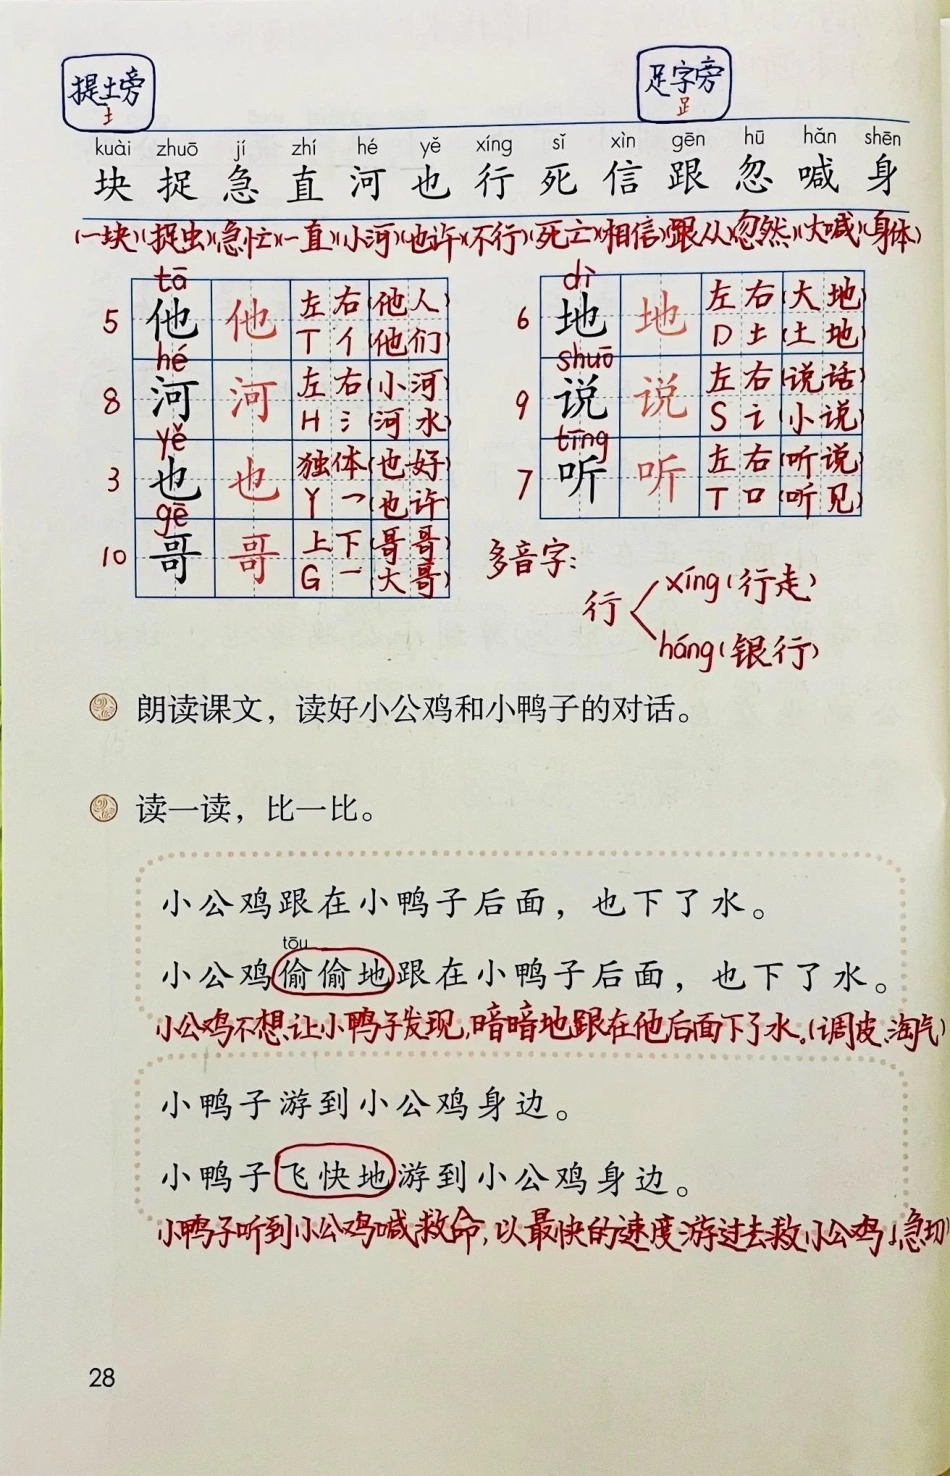 提土旁 足字旁
土 𧾷
kuài zhuō jí zhí hé yě xíng sǐ xìn gēn hū hǎn shēn
块 捉 急 直 河 也 行 死 信 跟 忽 喊 身
(一块)(捉虫)(急忙)(一直)(小河)(也许)(不行)(死亡)(相信)(跟从)(忽然)(大喊)(身体)
tā
5 他 他 左右 (他人)
T 亻 (他们)
hé
8 河 河 左右 (小河)
H 氵 (河水)
yě
3 也 也 独体 (也好)
Y 乛 (也许)
gē
10 哥 哥 上下 (哥哥)
G 一 (大哥)
dì
6 地 地 左右 (大地)
D 土 (土地)
shuō
9 说 说 左右 (说话)
S 讠 (小说)
tīng
7 听 听 左右 (听说)
T 口 (听见)
多音字:
行 xíng(行走)
háng(银行)
朗读课文，读好小公鸡和小鸭子的对话。
读一读，比一比。
小公鸡跟在小鸭子后面，也下了水。
tōu
小公鸡偷偷地跟在小鸭子后面，也下了水。
小公鸡不想让小鸭子发现,暗暗地跟在他后面下了水。(调皮、淘气)
小鸭子游到小公鸡身边。
小鸭子飞快地游到小公鸡身边。
小鸭子听到小公鸡喊救命,以最快的速度游过去救小公鸡。(急切)
28